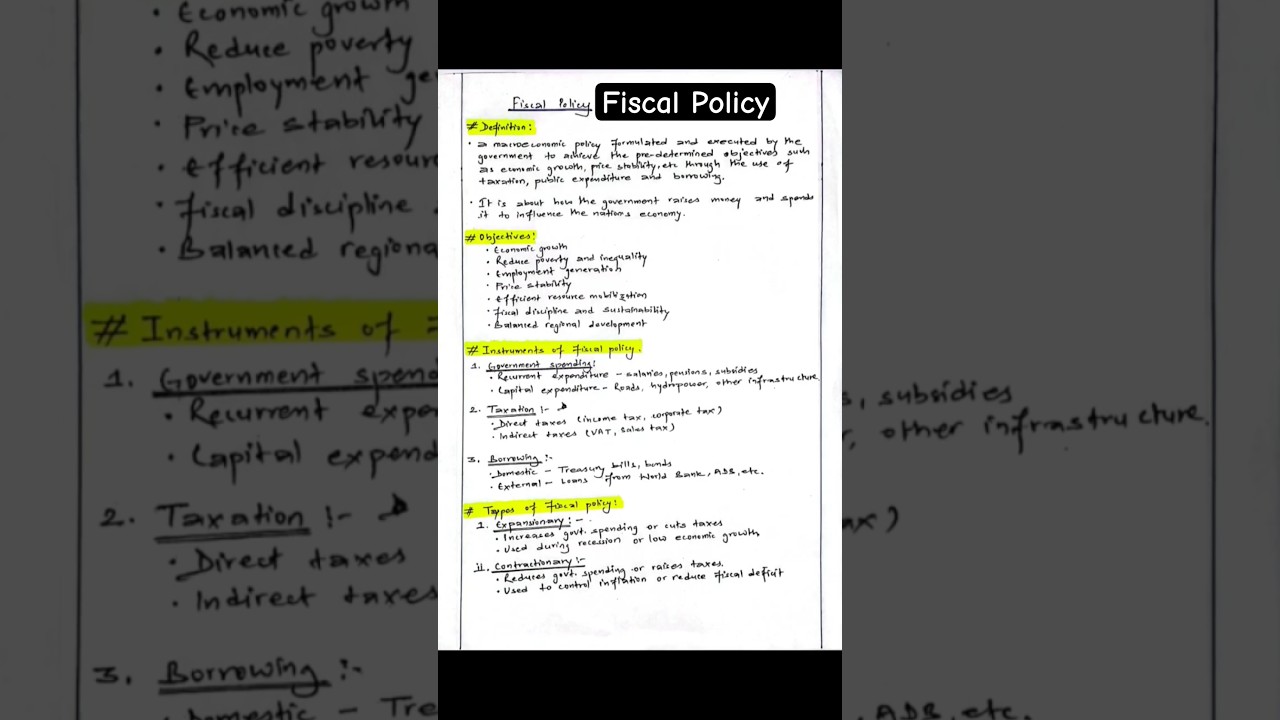 Fiscal Policy
Fiscal Policy
# Definition:
• a macroeconomic policy formulated and executed by the
government to achieve the pre-determined objectives such
as economic growth, price stability, etc through the use of
taxation, public expenditure and borrowing.
• It is about how the government raises money and spends
it to influence the nations economy.
# Objectives:
• Economic growth
• Reduce poverty and inequality
• Employment generation
• Price stability
• Efficient resource mobilization
• Fiscal discipline and sustainability
• Balanced regional development
# Instruments of Fiscal policy.
1. Government spending:
• Recurrent expenditure - salaries, pensions, subsidies
• Capital expenditure - Roads, hydropower, other infrastructure.
2. Taxation :-
• Direct taxes (income tax, corporate tax)
• Indirect taxes (VAT, sales tax)
3. Borrowing :-
• Domestic - Treasury bills, bonds
• External - Loans from World Bank, ADB, etc.
# Typpes of Fiscal policy:
1. Expansionary: -
• Increases govt. spending or cuts taxes
• Used during recession or low economic growth
ii. Contractionary :-
• Reduces govt. spending or raises taxes.
• Used to control inflation or reduce fiscal deficit
• Economic growth
• Reduce poverty
• Employment ge
• Price stability
• Efficient resour
• Fiscal discipline
• Balanced regional
# Instruments of
1. Government spend
• Recurrent expe
• Capital expend
2. Taxation :-
• Direct taxes
• Indirect taxes
3. Borrowing :-
• Domestic - Tre
s, subsidies
r, other infrastructure.
ax)
ADB, etc.